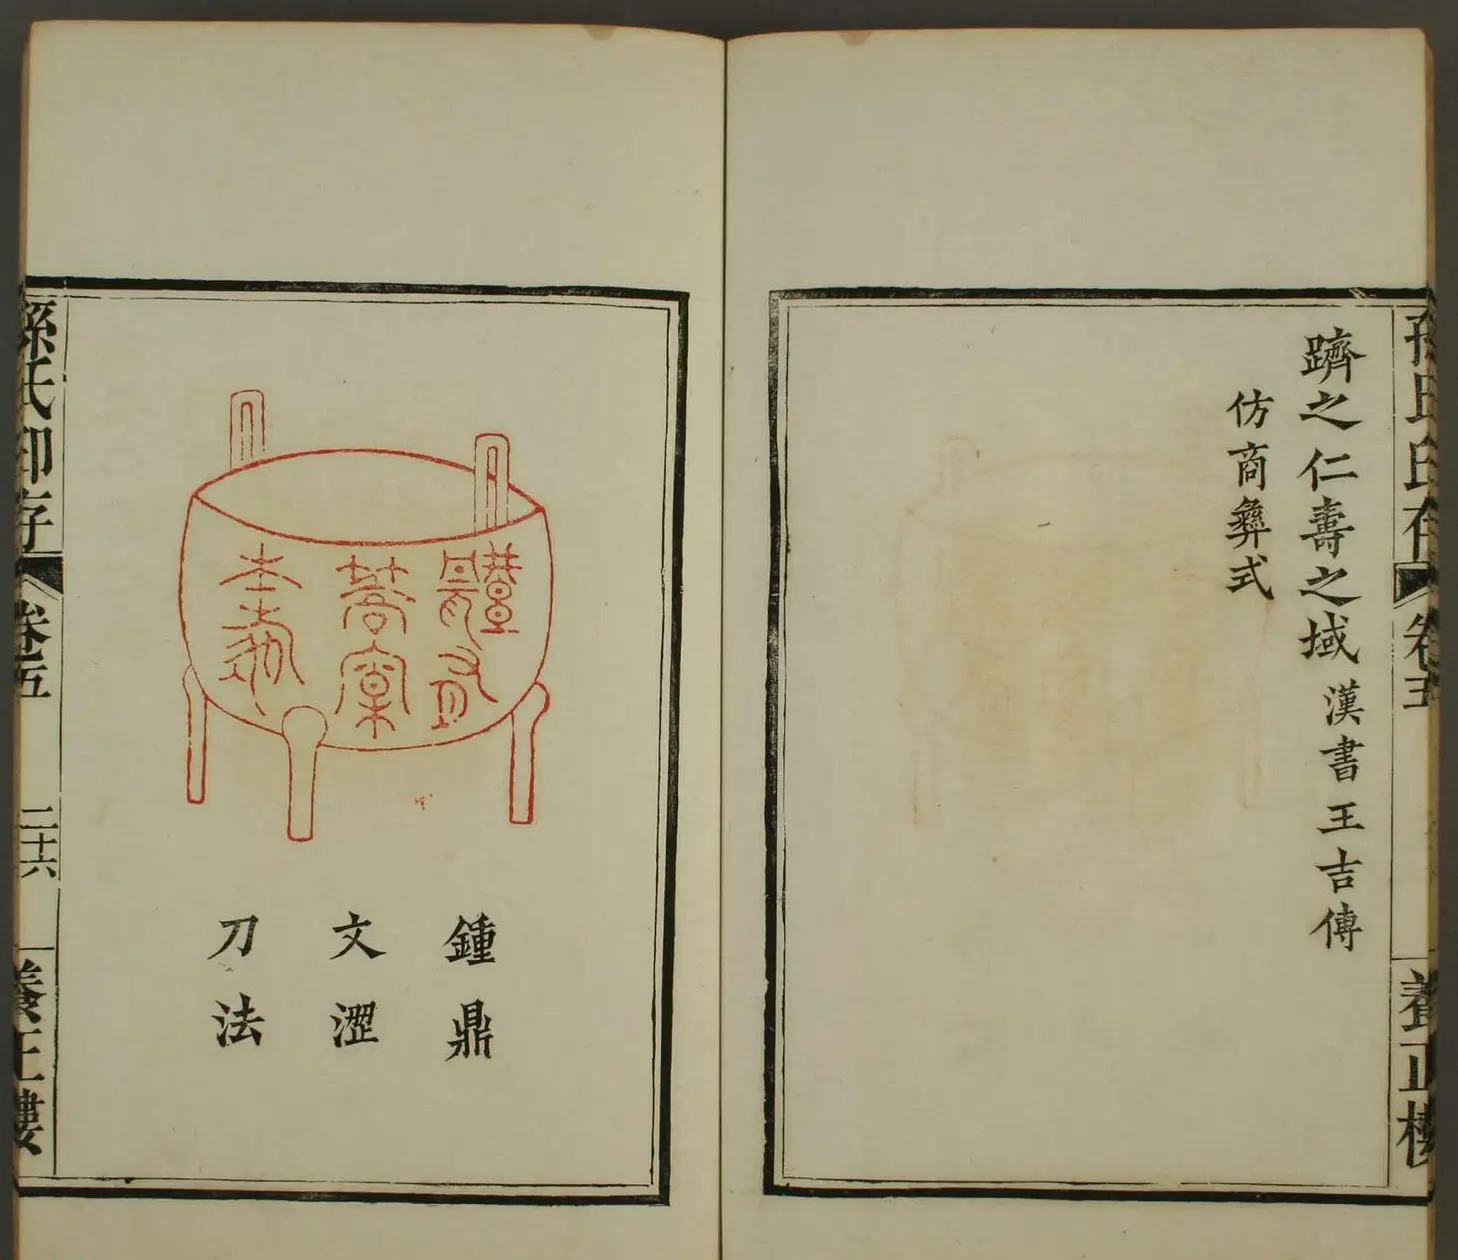 孫氏印存
卷五
養正樓
躋之仁壽之域 漢書王吉傳
仿商彝式
鍾鼎
文澀
刀法
孫氏印存
卷五
二十六
養正樓